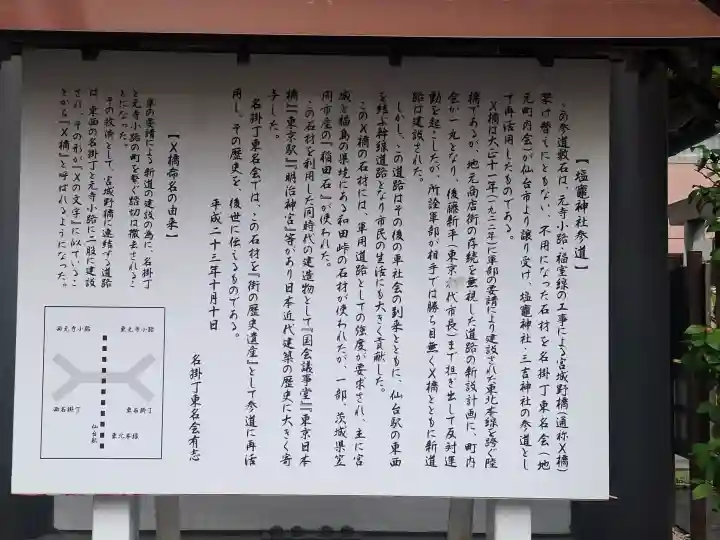 【塩竈神社参道】
この参道敷石は、元寺小路・福室線の工事による宮城野橋（通称X橋）
架け替えにともない、不用になった石材を名掛丁東名会（地
元町内会）が仙台市より譲り受け、塩竈神社・三吉神社の参道とし
て再活用したものである。
X橋は大正十一年（一九二二年）に軍部の要請により建設された東北本線を跨ぐ陸
橋であるが、地元商店街の存続を無視した道路の新設計画に、町内
会が一丸となり、後藤新平（東京 代市長）まで担ぎ出して反対運
動を起こしたが、所詮軍部が相手では勝ち目無くX橋とともに新道
路は建設された。
しかし、この道路はその後の車社会の到来とともに、仙台駅の東西
を結ぶ幹線道路となり市民の生活にも大きく貢献した。
このX橋の石材には、軍用道路としての強度が要求され、主に宮
城と福島の県境にある和田峠の石材が使われたが、一部、茨城県笠
間市産の『稲田石』が使われた。
この石材を利用した同時代の建造物として『国会議事堂』『東京日本
橋』『東京駅』『明治神宮』等があり日本近代建築の歴史に大きく寄
与した。
名掛丁東名会では、この石材を『街の歴史遺産』として参道に再活
用し、その歴史を、後世に伝えるものである。
平成二十三年十月十日
名掛丁東名会有志
【X橋命名の由来】
軍の要請による新道の建設の為に、名掛丁
と元寺小路の町を繋ぐ踏切は撤去されるこ
とになった。
その救済として、宮城野橋に連結する道路
は、東西の名掛丁と元寺小路に二股に建設
され、その形が『Xの文字』に似ているこ
とから『X橋』と呼ばれるようになった。
西元寺小路
東元寺小路
西名掛丁
東名掛丁
仙台駅
東北本線